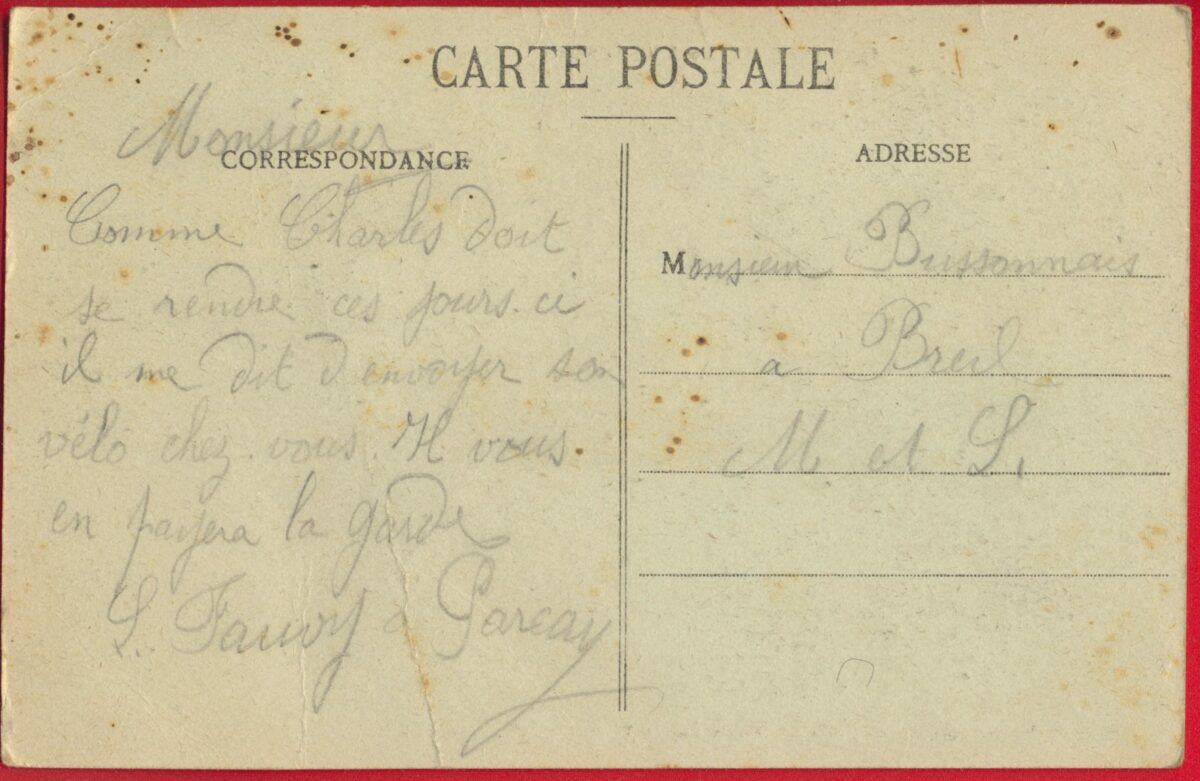 CARTE POSTALE
CORRESPONDANCE
Monsieur
Comme Charles doit
se rendre ces jours. ci
il me dit d'envoyer son
vélo chez. vous. Il vous.
en payera la garde
L. Fauvy à Parcay
ADRESSE
Monsieur Bussonnais
a Breil
M et L.